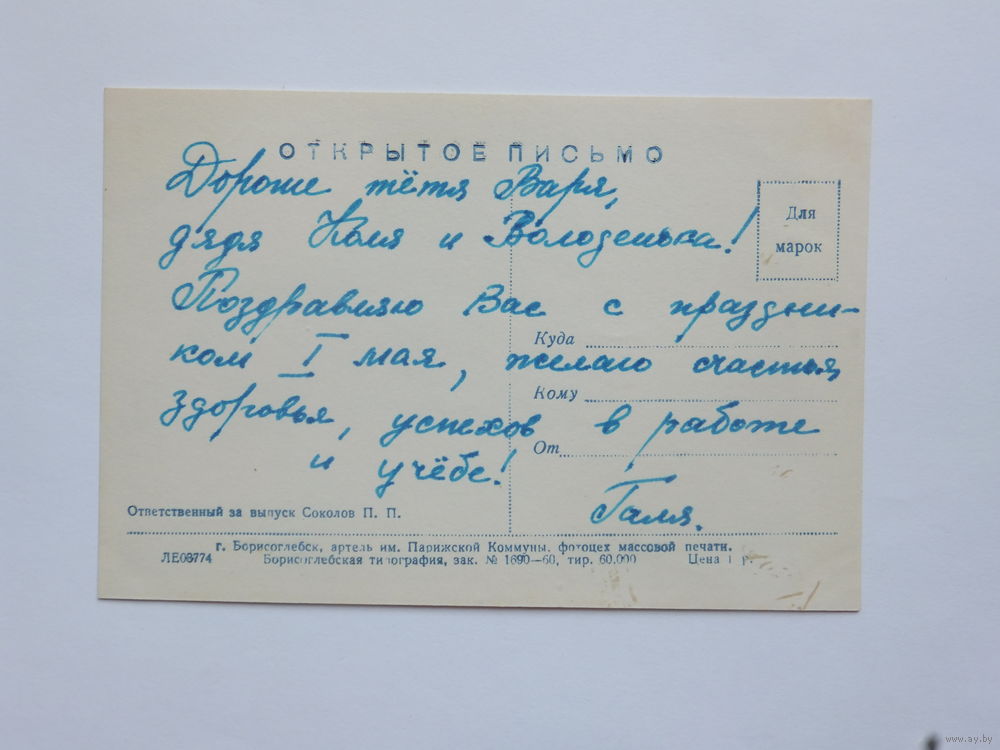 ОТКРЫТОЕ ПИСЬМО
Дорогие тётя Варя,
дядя Коля и Володенька!
Для
марок
Поздравляю Вас с праздни-
ком I мая, желаю счастья,
здоровья, успехов в работе
и учёбе!
Галя.
Куда
Кому
От
Ответственный за выпуск Соколов П. П.
г. Борисоглебск, артель им. Парижской Коммуны, фотоцех массовой печати.
ЛЕ03774 Борисоглебская типография, зак. № 1690—60, тир. 60.000 Цена 1 р.
www.ay.by